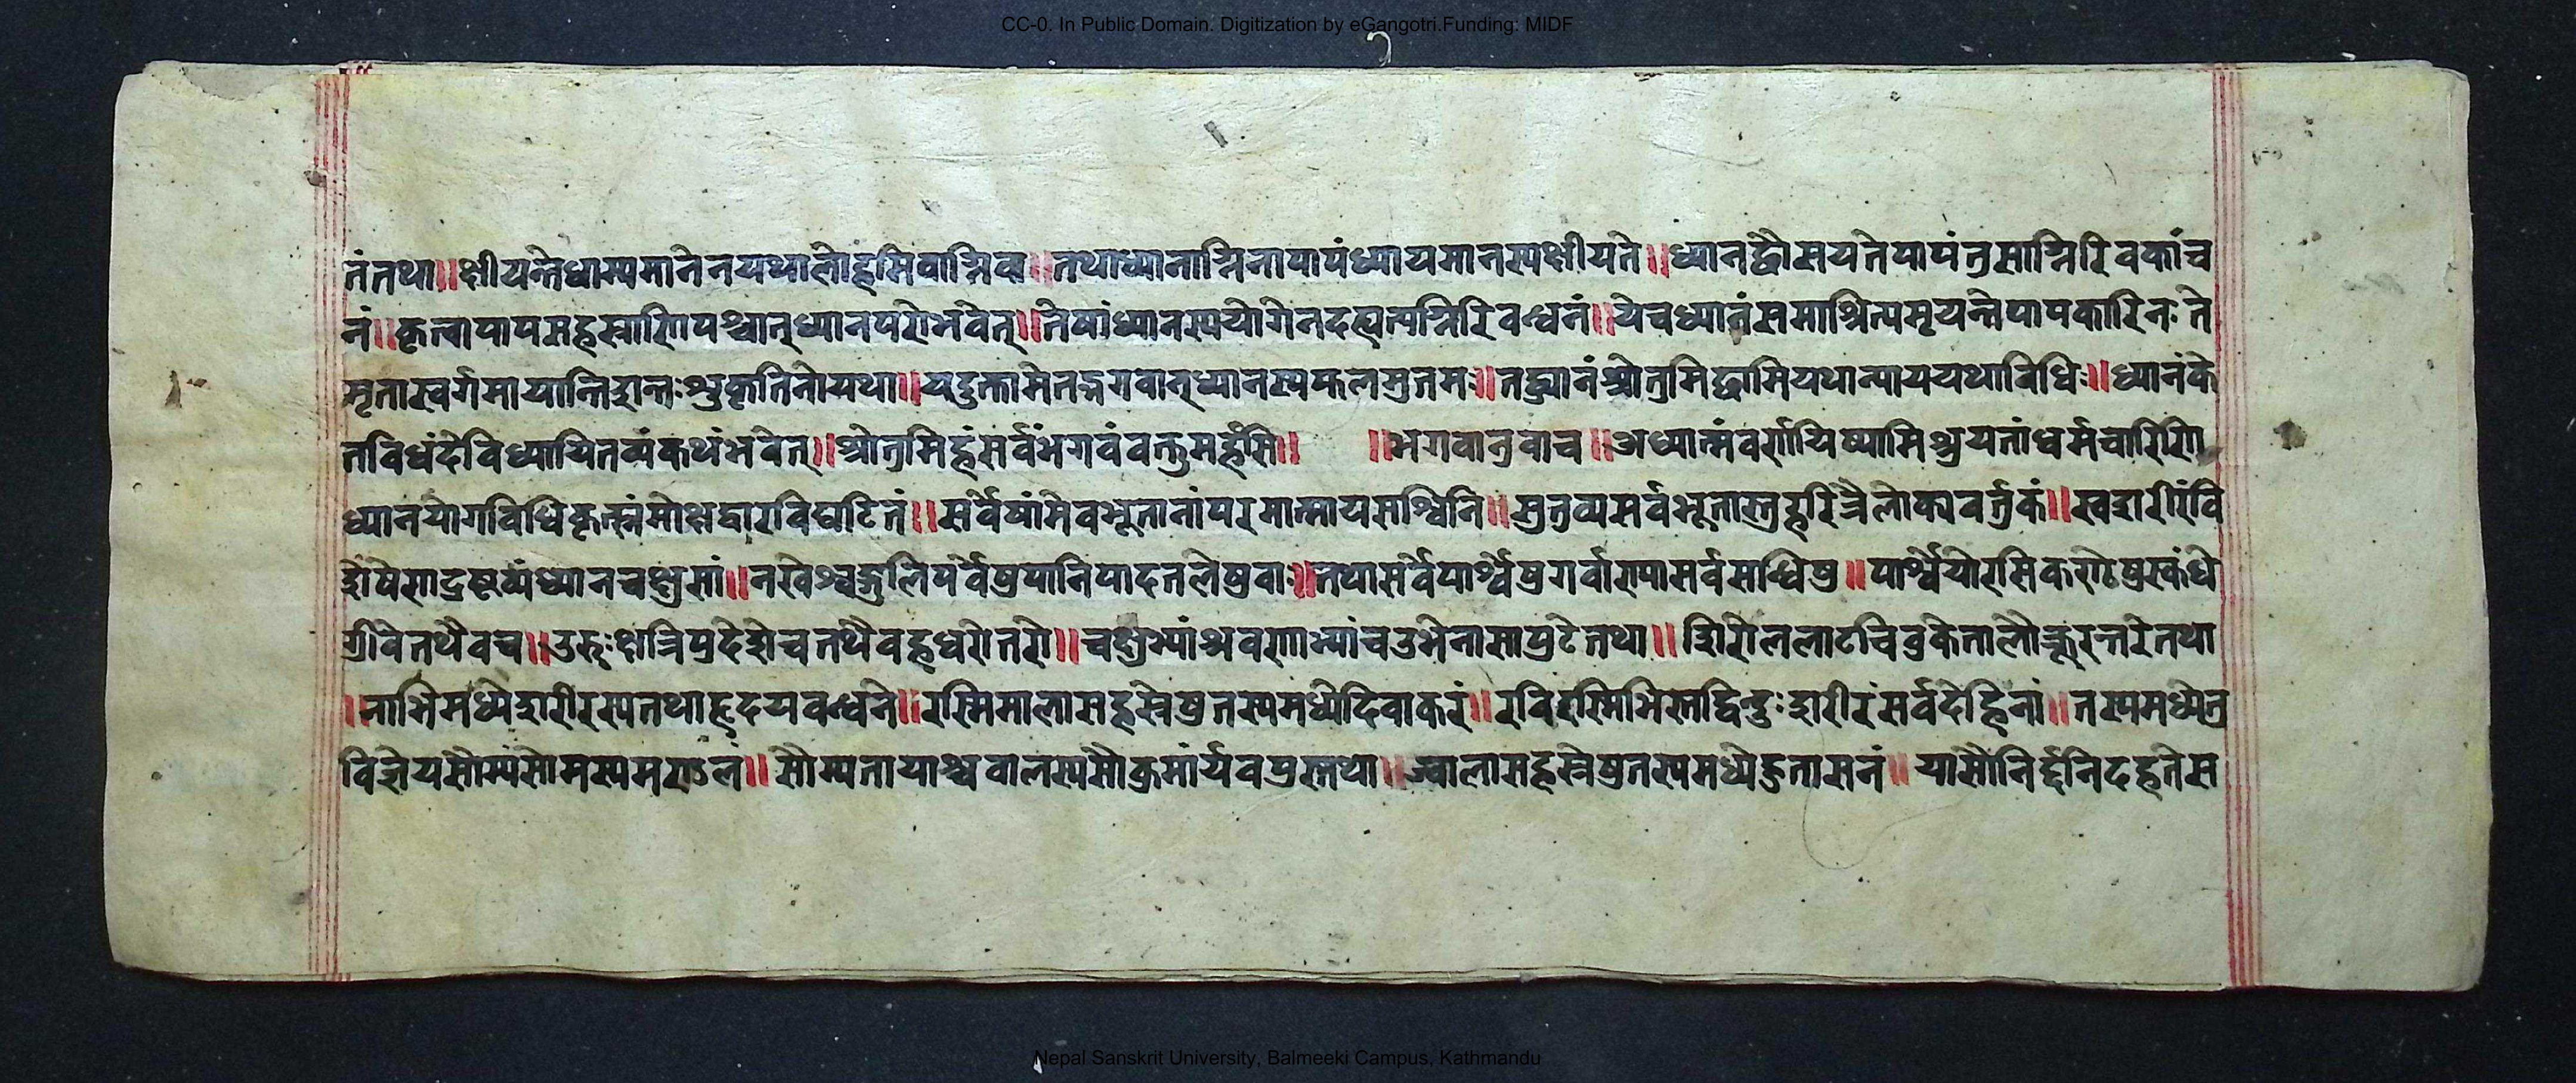 CC-0. In Public Domain. Digitization by eGangotri.Funding: MIDF
तंतथा॥क्षीयन्तेधाम्यमानेनयथालोहमिवाग्निवा॥तथाध्यानाग्निनापापंध्यायमानस्यक्षीयते॥ध्यानद्वौसयतेपापंतुसाग्निरिवकांच
नं॥कृत्वापापसहस्राणिपश्चात्ध्यानपरोभवेत्॥तेषांध्यानस्ययोगेनदह्यत्यग्निरिवन्धनं॥येचध्यानंसमाश्रित्यमृयन्तेपापकारिनः ते
मृतास्वर्गमायान्तिशान्तःश्रुकृतिनोयथा॥यदुक्तामेतद्भगवान्ध्यानस्यफलमुत्तमः॥तद्ध्यानंश्रोतुमिछामियथान्याययथाविधिः॥ध्यानंके
तविधंदेविध्यायितव्यंकथंभवेत्॥श्रोतुमिहंसर्वंभगवंवक्तुमर्हसि॥ ॥भगवानुवाच॥अध्यात्मंवर्णयिष्यामिश्रुयतांधर्मचारिणि
ध्यानयोगविधिकृत्स्नंमोक्षद्वारविघटितं॥सर्वेषांमेवभूतानांपरमात्मायसाश्विनि॥मुतुव्यसर्वभूतास्तुहरिंत्रैलोक्यवर्तुकं॥स्वशरीरंवि
शेषेणद्रष्टव्यंध्यानचक्षुसां॥नखेश्वङ्गुलिपर्वेषुपानिपादतलेषुवाः॥तथासर्वेपार्श्वेषुगर्वारापासर्वसन्धिषु॥पार्श्वेयोरसिकराठेषुस्कंधे
ग्रीवेतथैवच॥उरुःक्षत्रिप्रदेशेचतथैवह्यधरोतरो॥चक्षुभ्यांश्रवणाभ्यांचउभेनासापुटेतथा॥शिरोललाटचिवुकेतालौभ्रूरन्तरेतथा
।नाभिमध्येशरीरस्यतथाहृदयवन्धने॥रस्मिमालासहस्रेषुतस्यमध्येदिवाकरं॥रविरस्मिभिस्तद्विन्दुःशरीरंसर्वदेहिनां॥तस्यमध्येतु
विज्ञेयसौम्यंसोमस्यमण्डलं॥सौम्यतायाश्चवालस्यसौक्रमार्यवपुस्तथो॥ज्वालासहस्रेषुतस्यमध्येहुतासनं॥यासौनिर्द्दनिदहतेस
Nepal Sanskrit University, Balmeeki Campus, Kathmandu